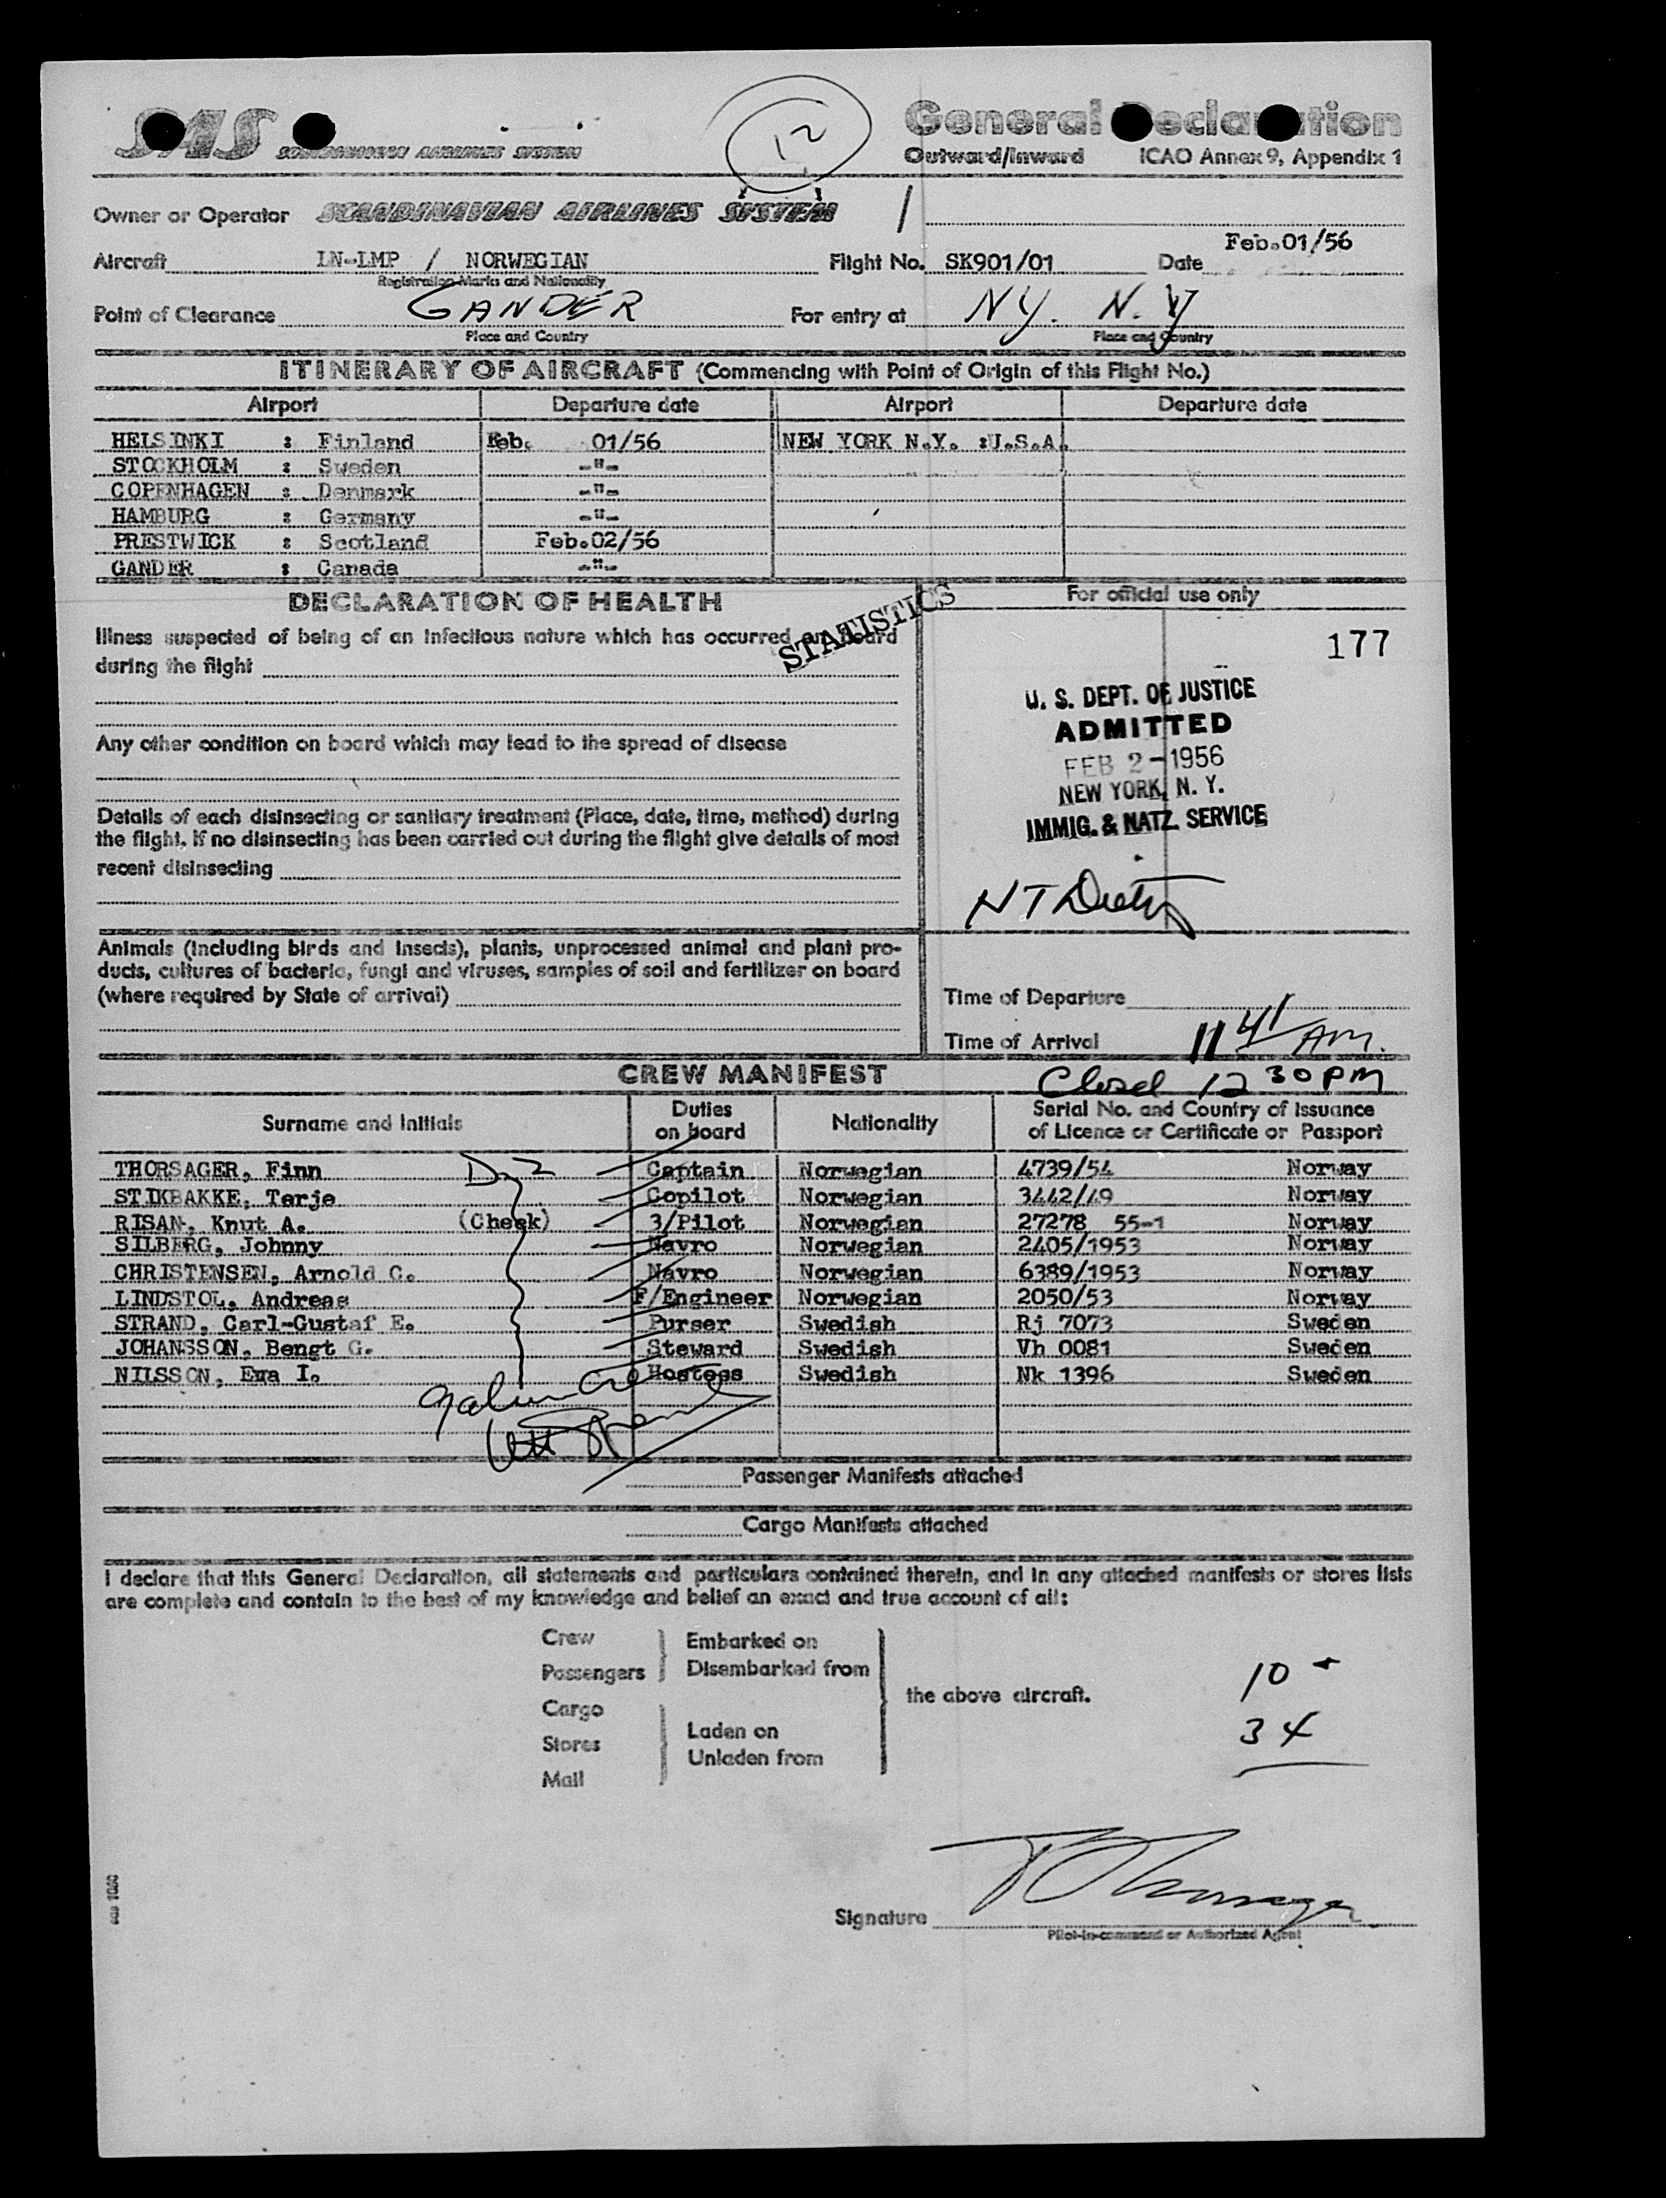 SAS SCANDINAVIAN AIRLINES SYSTEM
12
General Declaration
Outward/Inward ICAO Annex 9, Appendix 1
Owner or Operator SCANDINAVIAN AIRLINES SYSTEM
Aircraft LN-LMP / NORWEGIAN Flight No. SK901/01 Date Feb.01/56
Registration Marks and Nationality
Point of Clearance GANDER For entry at NY. N.Y
Place and Country Place and Country
ITINERARY OF AIRCRAFT (Commencing with Point of Origin of this Flight No.)
Airport Departure date Airport Departure date
HELSINKI : Finland Feb. 01/56 NEW YORK N.Y. :U.S.A.
STOCKHOLM : Sweden -"-
COPENHAGEN : Denmark -"-
HAMBURG : Germany -"-
PRESTWICK : Scotland Feb.02/56
GANDER : Canada -"-
DECLARATION OF HEALTH
STATISTICS
For official use only
Illness suspected of being of an infectious nature which has occurred on board
during the flight
177
Any other condition on board which may lead to the spread of disease
U. S. DEPT. OF JUSTICE
ADMITTED
FEB 2-1956
NEW YORK, N. Y.
IMMIG. & NATZ. SERVICE
Details of each disinsecting or sanitary treatment (Place, date, time, method) during
the flight. If no disinsecting has been carried out during the flight give details of most
recent disinsecting
Animals (including birds and insects), plants, unprocessed animal and plant pro-
ducts, cultures of bacteria, fungi and viruses, samples of soil and fertilizer on board
(where required by State of arrival)
Time of Departure
Time of Arrival 11 41 AM.
CREW MANIFEST
Closed 12 30 PM
Surname and Initials Duties on board Nationality Serial No. and Country of Issuance
of Licence or Certificate or Passport
THORSAGER, Finn D-2 Captain Norwegian 4739/54 Norway
STIKBAKKE, Terje Copilot Norwegian 3442/49 Norway
RISAN, Knut A. (Check) 3/Pilot Norwegian 27278 55-1 Norway
SILBERG, Johnny Navro Norwegian 2405/1953 Norway
CHRISTENSEN, Arnold C. Navro Norwegian 6389/1953 Norway
LINDSTOL, Andreas F/Engineer Norwegian 2050/53 Norway
STRAND, Carl-Gustaf E. Purser Swedish Rj 7073 Sweden
JOHANSSON, Bengt G. Steward Swedish Vh 0081 Sweden
NILSSON, Eva I. Hostess Swedish Nk 1396 Sweden
Passenger Manifests attached
Cargo Manifests attached
I declare that this General Declaration, all statements and particulars contained therein, and in any attached manifests or stores lists
are complete and contain to the best of my knowledge and belief an exact and true account of all:
Crew
Passengers
Embarked on
Disembarked from
Cargo
Stores
Mail
Laden on
Unladen from
the above aircraft.
10
34
Signature
Pilot-in-command or Authorized Agent
sas 1060